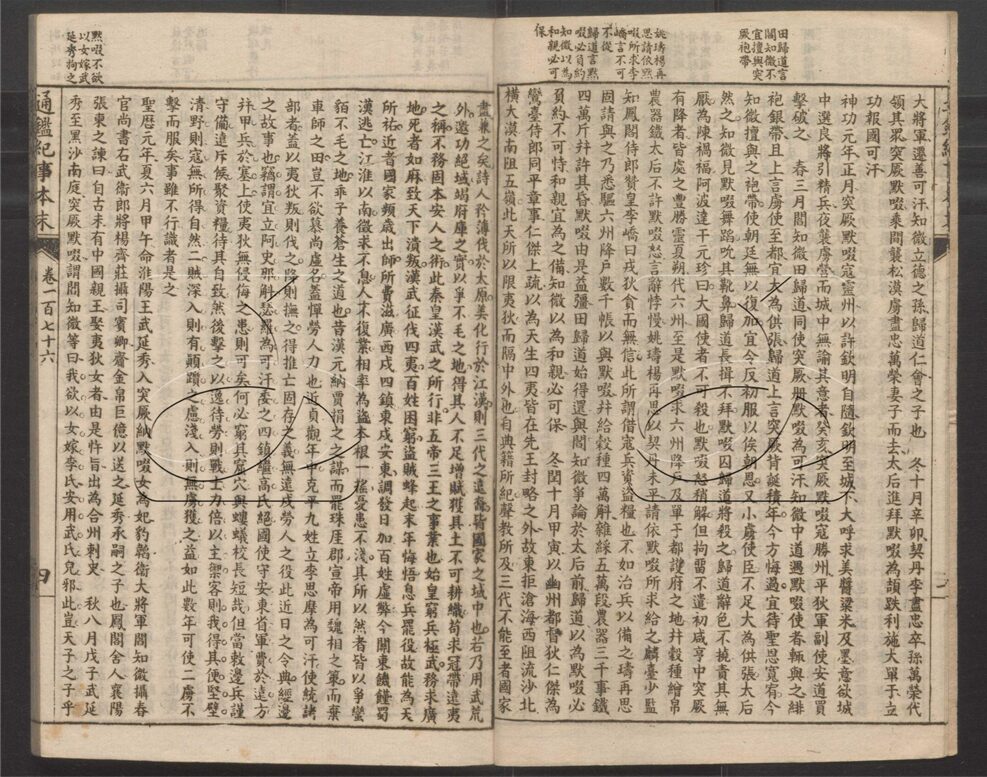 田歸道言
閻知微不
宜擅與突
厥袍帶
姚璹楊再
思請依黙
啜所求李
嶠言不可
不從
歸道言黙
啜必負約
知微以為
和親必可
保
大將軍遷善可汗知微立德之孫歸道仁會之子也　冬十月辛卯契丹李盡忠卒孫萬榮代
領其眾突厥默啜乘間襲松漠虜盡忠萬榮妻子而去太后進拜默啜為頡跌利施大單于立
功報國可汗
神功元年正月突厥默啜寇靈州以許欽明自隨欽明至城下大呼求美醬粱米及墨意欲城
中選良將引精兵夜襲虜營而城中無諭其意者癸亥突厥默啜寇勝州平狄軍副使安道買
擊破之　春三月閻知微田歸道同使突厥冊默啜為可汗知微中道遇默啜使者輒與之緋
袍銀帶且上言虜使至都宜大為供張歸道上言突厥背誕積年今方悔過宜待聖恩寬宥今
知微擅與之袍帶使朝廷無以復加宜令反初服以俟朝恩又小虜使臣不足大為供張太后
然之知微見默啜舞蹈吮其靴鼻歸道長揖不拜默啜囚歸道將殺之歸道辭色不撓責其無
厭為陳禍福阿波達干元珍曰大國使者不可殺也默啜怒稍解但拘留不遣初咸亨中突厥
有降者皆處之豐勝靈夏朔代六州至是默啜求六州降戶及單于都護府之地并穀種繒帛
農器鐵太后不許默啜怒言辭悖慢姚璹楊再思以契丹未平請依默啜所求給之麟臺少監
知鳳閣侍郎贊皇李嶠曰戎狄貪而無信此所謂借寇兵資盜糧也不如治兵以備之璹再思
固請與之乃悉驅六州降戶數千帳以與默啜幷給穀種四萬斛雜綵五萬段農器三千事鐵
四萬斤幷許其昏默啜由是益彊田歸道始得還與閻知微爭論於太后前歸道以為默啜必
負約不可恃和親宜為之備知微以為和親必可保　冬閏十月甲寅以幽州都督狄仁傑為
鸞臺侍郎同平章事仁傑上疏以為天生四夷皆在先王封略之外故東拒滄海西阻流沙北
橫大漠南阻五嶺此天所以限夷狄而隔中外也自典籍所紀聲教所及三代不能至者國家
盡兼之矣詩人矜薄伐於太原美化行於江漢則三代之遠裔皆國家之域中也若乃用武荒
外邀功絕域竭府庫之實以爭不毛之地得其人不足增賦獲其土不可耕織苟求冠帶遠夷
之稱不務固本安人之術此秦皇漢武之所行非五帝三王之事業也始皇窮兵極武務求廣
地死者如麻致天下潰叛漢武征伐四夷百姓困窮盜賊蜂起末年悔悟息兵罷役故能為天
所祐近者國家頻歲出師所費滋廣西戍四鎮東戍安東調發日加百姓虛弊今關東饑饉蜀
漢逃亡江淮以南徵求不息人不復業相率為盜本根一搖憂患不淺其所以然者皆以爭蠻
貊不毛之地乖子養蒼生之道也昔漢元納賈捐之之謀而罷珠崖郡宣帝用魏相之策而棄
車師之田豈不欲慕尚虛名蓋憚勞人力也近貞觀年中克平九姓立李思摩為可汗使統諸
部者蓋以夷狄叛則伐之降則撫之得推亡固存之義無遠戍勞人之役此近日之令典經邊
之故事也竊謂宜立阿史那斛瑟羅為可汗委之四鎮繼高氏絕國使守安東省軍費於遠方
幷甲兵於塞上使夷狄無侵侮之患則可矣何必窮其窟穴與螻蟻校長短哉但當敕邊兵謹
守備遠斥候聚資糧待其自致然後擊之以逸待勞則戰士力倍以主禦客則我得其便堅壁
清野則寇無所得自然二賊深入則有顛躓之慮淺入則無虜獲之益如此數年可使二虜不
擊而服矣事雖不行識者是之
聖曆元年夏六月甲午命淮陽王武延秀入突厥納默啜女為妃豹韜衛大將軍閻知微攝春
官尚書右武衛郎將楊齊莊攝司賓卿齎金帛巨億以送之延秀承嗣之子也鳳閣舍人襄陽
張柬之諫曰自古未有中國親王娶夷狄女者由是忤旨出為合州刺史　秋八月戊子武延
秀至黑沙南庭突厥默啜謂閻知微等曰我欲以女嫁李氏安用武氏兒邪此豈天子之子乎
黙啜不欲
以女嫁武
延秀拘之
通鑑紀事本末
卷一百七十六
四